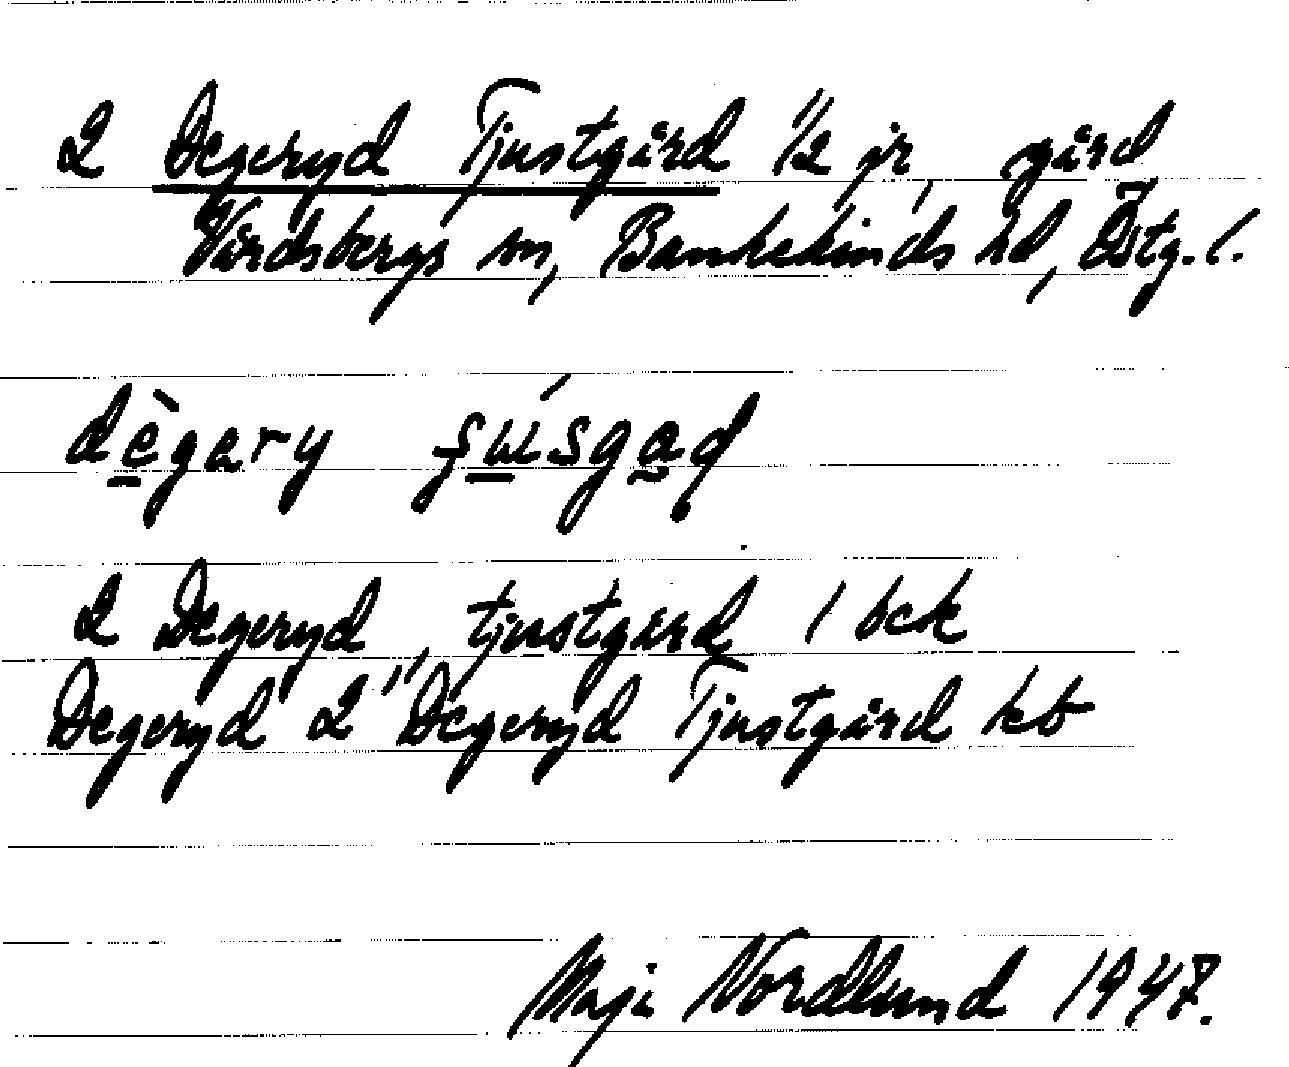 2 Degeryd Tjustgård 1/2 jr, gård
Vårdsbergs sn, Bankekinds hd, Östg. l.
dègary ʃu̇́sgaḍ
2 Degeryd, tjustgård / bck
Degeryd 2 " Degeryd Tjustgård kb
Maji Nordlund 1947.